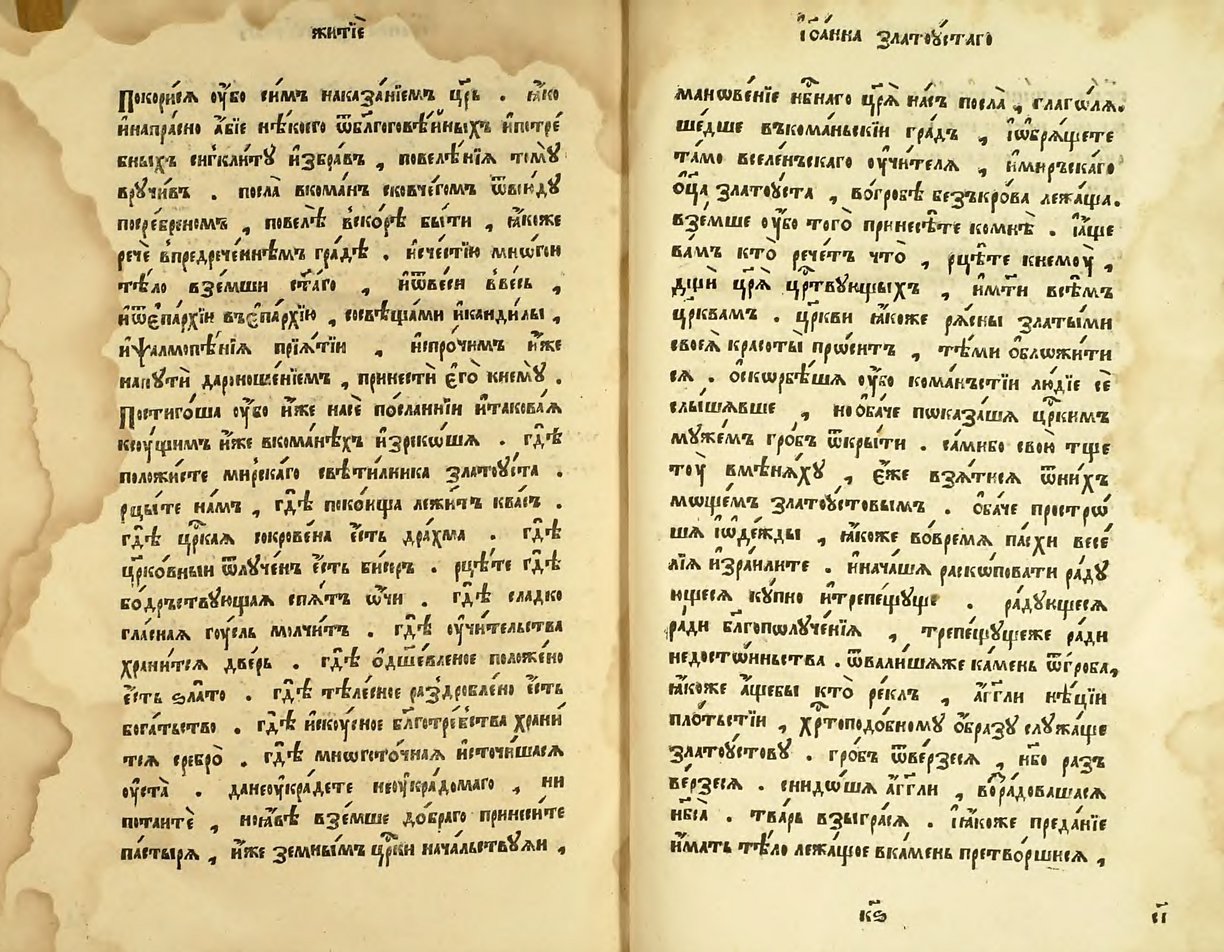 житїѐ
Покори́сѧ ᲂу҆́бо симъ наказа́нїемъ цр҃ь . ꙗ҆́ко
и҆напра́сно а҆́бїе нѣ́коего ѿбл҃гоговѣ́йныхъ и҆потре́
бныхъ сиг҆кли́тꙋ и҆збра́въ , повелѣ́нїѧ томꙋ̀
врꙋчи́въ . посла̀ вкома́нъ сковче́гомъ ѿви́дꙋ
посре́бреномъ , повелѣ̀ вско́рѣ бы́ти , ꙗ҆́коже
речѐ в҆предрече́ннѣмъ гра́дѣ . и҆сче́стїю мнѡ́гои
тѣ́ло взе́мши ст҃а́го , и҆ѿве́си в҆ве́сь ,
и҆ѿє҆па́рхїи въє҆па́рхїю , сосвѣща́ми и҆канди́лы ,
и҆ѱалмопѣ́нїѧ прїѧ́тїи , и҆спро́чимъ и҆́же
напꙋтѝ дароноше́нїемъ , принестѝ є҆гѐ книемꙋ̀ .
Постиго́ша ᲂу҆́бо и҆́же насѐ по́сланнїи и҆такова́ѧ
ксꙋ́щимъ и҆́же вкома́нѣхъ и҆зреко́шѧ . гдѣ̀
положи́сте ми́рскаго свѣти́лника златоꙋ́ста .
рцы́те на́мъ , гдѣ̀ поко́ища лежи́тъ ква́съ .
гдѣ̀ цр҃каѧ сокрове́на є҆́сть дра́хма . гдѣ̀
цр҃ко́вныи ѿлꙋче́нъ є҆́сть би́серъ . рцѣ́те гдѣ̀
бо́дръствꙋющаѧ спѧ́тъ ѡ҆́чи . гдѣ̀ сладко
гла́снаѧ гоу́сль молчи́тъ . гдѣ̀ ᲂу҆чи́тельства
храни́тсѧ две́рь . гдѣ̀ о҆дш҃е́вленое положе́но
є҆́сть ѕла́то . гдѣ̀ тѣле́сное раздро́блено є҆́сть
бога́тьство . гдѣ̀ и҆скоу́сное бл҃готре́бства храни́
тсѧ сребро̀ . гдѣ̀ мнѡгото́чнаѧ и҆сточи́шасѧ
ᲂу҆ста̀ . данеᲂу҆кра́дете неᲂу҆кра́домаго , ни
потаитѐ , ноꙗ҆́вѣ взе́мше до́браго принеси́те
па́стырѧ , и҆́же земны́мъ цр҃ки нача́льствꙋѧи ,
і҆ѡа́нна златоꙋ́стаго
мановѐнїе нб҃наго цр҃ѧ̀ на́съ посла̀ , глаго́лѧ .
ше́дше въкома́ньскїи гра́дъ , і҆ѡбрѧ́щете
та́мо вселе́нъскаго ᲂу҆чи́телѧ , и҆ми́ръскаго
о҆ц҃а̀ златоꙋ́ста , во́гробѣ безъкро́ва лежа́ща .
взе́мше ᲂу҆́бо того̀ принесѣ́те комнѣ̀ . і҆а҆́ще
ва́мъ кто̀ рече́тъ что̀ , рцѣ́те книемꙋ̀ ,
дщѝ цр҃ѧ̀ цр҃твꙋющыхъ , и҆мт҃и всѣ́мъ
цр҃квамъ . цр҃кви ꙗ҆́коже рѧ́сны златы́ми
своеѧ̀ красоты̀ про́ситъ , тѣ́ми о҆бложи́ти
сѧ . о҆скѡрбѣ́шѧ ᲂу҆́бо кома́нъстїи лю́дїе сѐ
слы́шѧвше , нооба́че пѡказа́шѧ цр҃кимъ
мꙋже́мъ гро́бъ ѿкры́ти . са́мибо свою̀ тще
тоу̀ вмѣнѧ́хꙋ , є҆́же взѧ́тисѧ ѿни́хъ
мѡще́мъ златоꙋ́стовымъ . о҆ба́че простро́
шѧ і҆ѡде́жды , ꙗ҆́коже во́времѧ па́схи весе́
лїѧ и҆зраи́лите . и҆нача́шѧ раскѡпова́ти ра́дꙋ
ющесѧ кꙋ́пно и҆трепе́щꙋще . ра́дꙋющесѧ
ра́ди бл҃гопѡлꙋче́нїѧ , трепе́щꙋщеже ра́ди
недосто́йньства . ѿвали́шѧже ка́мень ѿгро́ба ,
ꙗ҆́коже а҆́щебы кто̀ ре́клъ , а҆́гг҃ли нѣ́цїи
пло́тьстїи , хр҃топодо́бномꙋ ѡ҆́бразꙋ слꙋжа́ще
златоꙋ́стовꙋ . гро́бъ ѿве́рзесѧ , нб҃о разъ
ве́рзесѧ . снидо́шѧ а҆́гг҃ли , во҆зра́довашасѧ
нб҃са̀ . тва́рь взыгра́сѧ . і҆ꙗ҆́коже преда́нїе
и҆́мать тѣ́ло лежа́щое вка́мень претво́ршисѧ ,
кѕ҃
є҃і